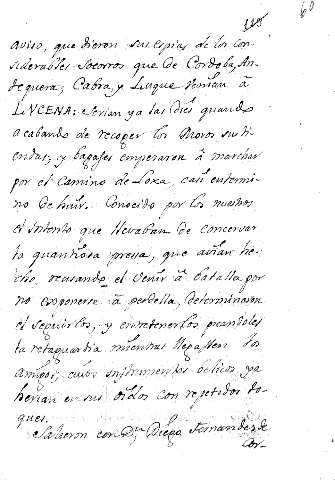 60
aviso, que dieron sus espias de los con-
siderables socorros que de Cordoba, An-
tequera; Cabra, y Luque venian â
LVCENA: serian ya las diez quando
acabando de recoger los Moros sus ti-
endas; y bagages empezaron â marchar
por el camino de Loxa, casi en termi-
no de huir. Conocido por los nuestros
el intento que llevaban de conservar
la quantiosa presa, que avian he-
cho, recusando el venir â batalla por
no exponerse â perdella, determinaron
el seguirlos, y entretenerlos picandoles
la retaguardia mientras llegassen los
Amigos; cuios instrumentos belicos ya
herian en sus oidos con repetidos to-
ques.
Salieron con Dn Diego Fernandez de
Cor-